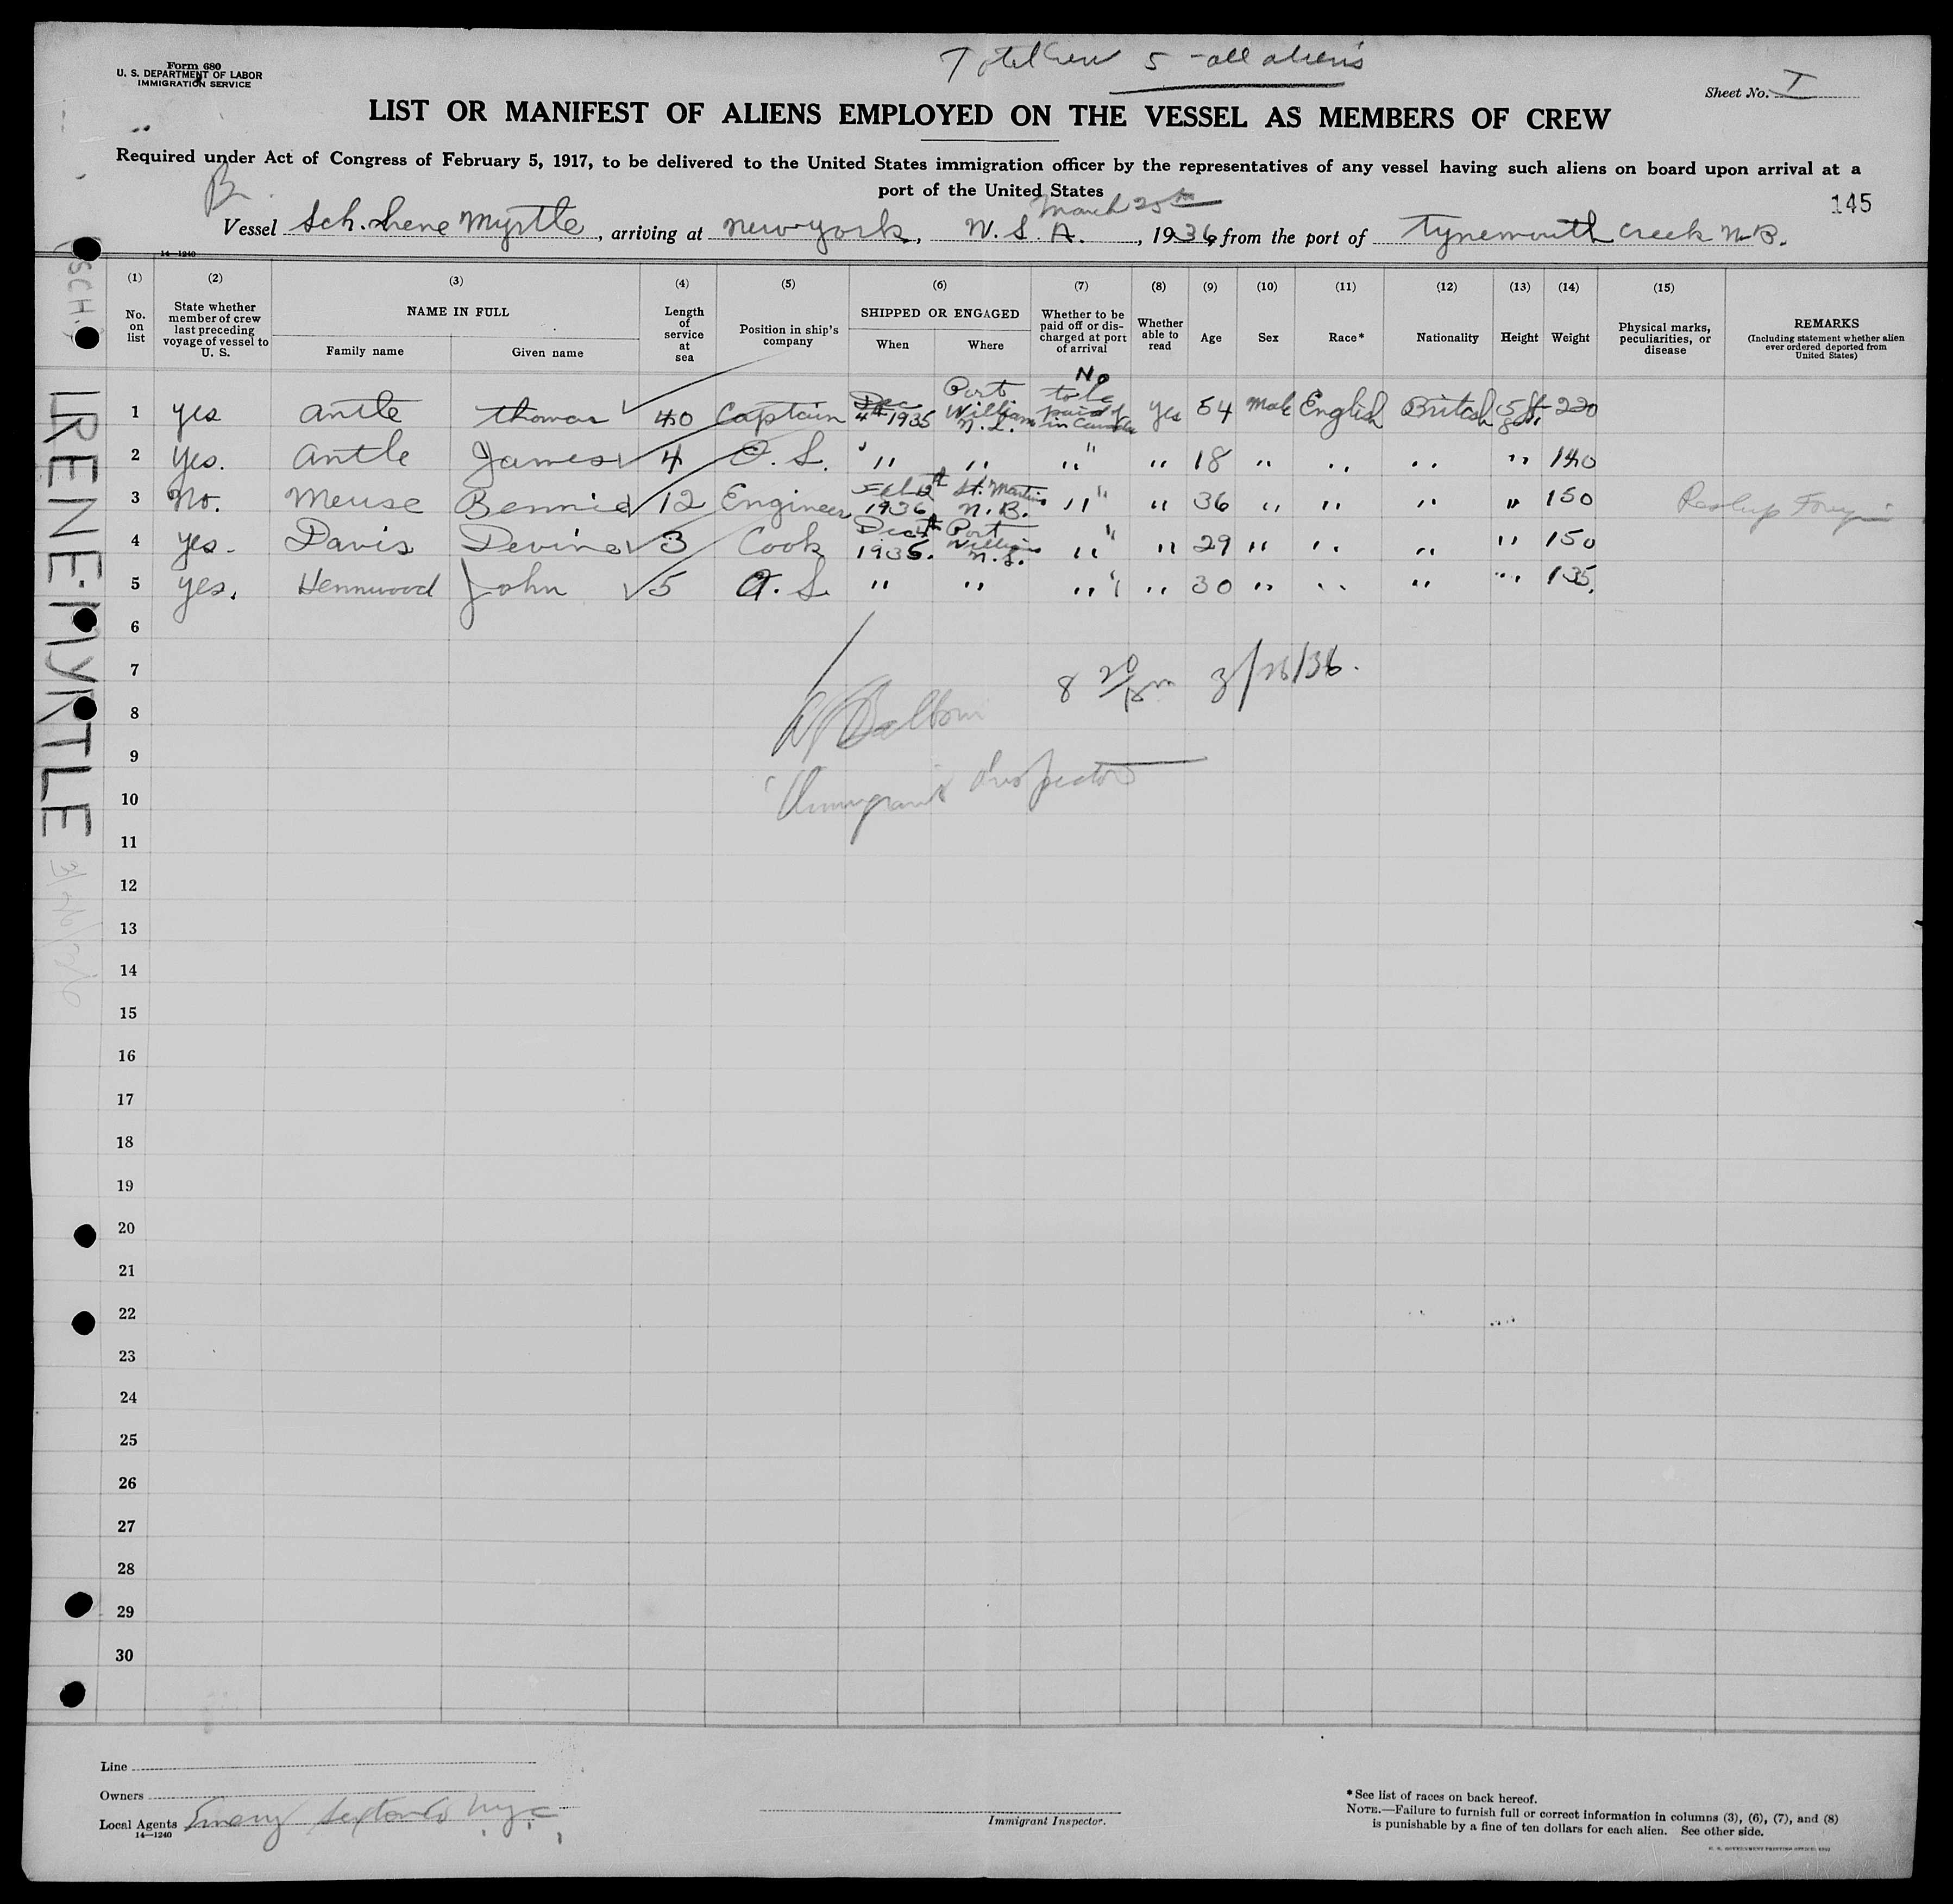 Form 680
U. S. DEPARTMENT OF LABOR
IMMIGRATION SERVICE
Total Crew 5 - all aliens
Sheet No. I
LIST OR MANIFEST OF ALIENS EMPLOYED ON THE VESSEL AS MEMBERS OF CREW
Required under Act of Congress of February 5, 1917, to be delivered to the United States immigration officer by the representatives of any vessel having such aliens on board upon arrival at a
port of the United States
Br.
March 25th
145
Vessel Sch. Irene Myrtle, arriving at New York, U. S. A., 1936, from the port of Tynemouth Creek N.B.
14-1240
(1) (2) (3) (4) (5) (6) (7) (8) (9) (10) (11) (12) (13) (14) (15)
No. on list
State whether member of crew last preceding voyage of vessel to U. S.
NAME IN FULL
Family name
Given name
Length of service at sea
Position in ship's company
SHIPPED OR ENGAGED
When
Where
Whether to be paid off or discharged at port of arrival
Whether able to read
Age
Sex
Race*
Nationality
Height
Weight
Physical marks, peculiarities, or disease
REMARKS
(Including statement whether alien ever ordered deported from United States)
1 yes Antle Thomas 40 Captain Dec 4th 1935 Port William N.S. No to be paid of in Canada yes 54 Male English British 5 ft 8 220
2 Yes. Antle James 4 O. S. " " " " 18 " " " " 140
3 No. Meuse Bennie 12 Engineer Feb 12th 1936 St. Martins N.B. " " 36 " " " " 150 Foreign
4 yes. Davis Devine 3 Cook Dec 4th 1935. Port William N.S. " " 29 " " " " 150
5 yes. Hennwood John 5 O. S. " " " " 30 " " " " 135.
6
7
8 20/ 3/26/36.
8
9
Immigrant Inspector
10
11
12
13
14
15
16
17
18
19
20
21
22
23
24
25
26
27
28
29
30
(SCH.) IRENE MYRTLE 3/26/36
Line
Owners
Local Agents Emery Sexton Co N.Y.C.
14—1240
Immigrant Inspector.
*See list of races on back hereof.
NOTE.—Failure to furnish full or correct information in columns (3), (6), (7), and (8)
is punishable by a fine of ten dollars for each alien. See other side.